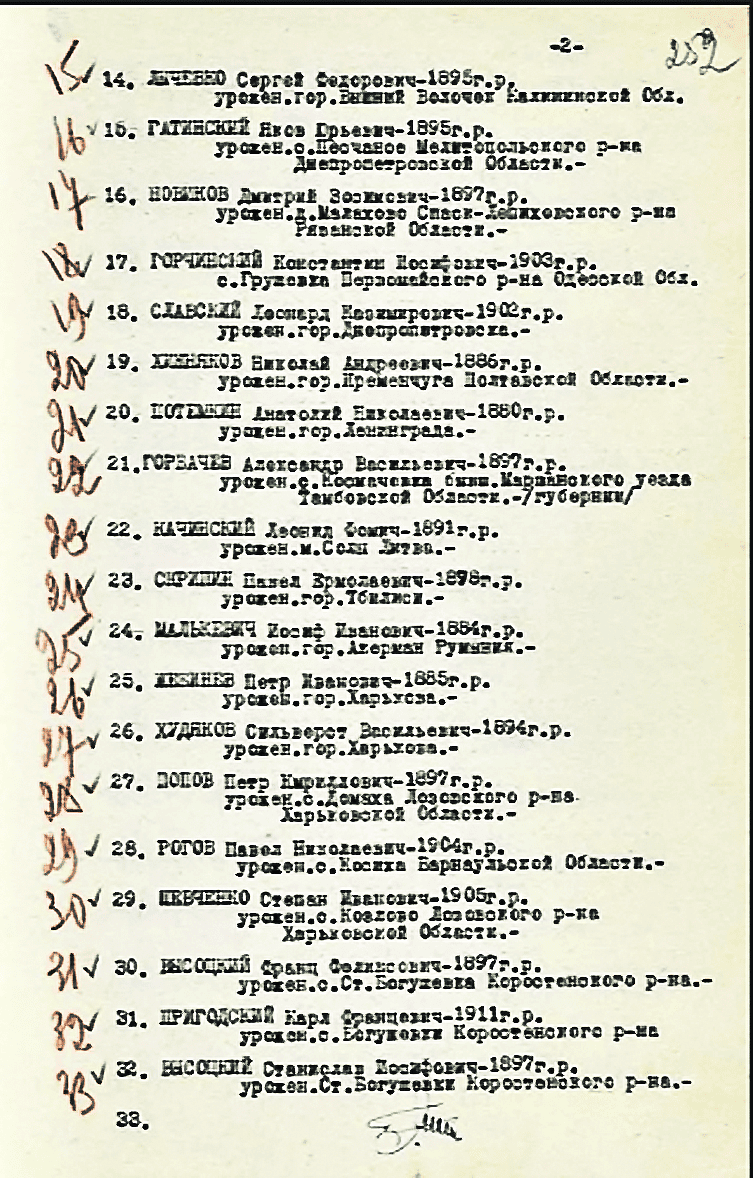 -2-
252
15 14. ДЯЧЕНКО Сергей Федорович-1895г.р.
урожен.гор.Вышний Волочек Калининской Обл.
16 15. ГАТИНСКИЙ Яков Юрьевич-1895г.р.
урожен.с.Песчаное Мелитопольского р-на
Днепропетровской Области.-
17 16. НОВИКОВ Дмитрий Зосимович-1897г.р.
урожен.д.Малахово Спаск-Лепиховского р-на
Рязанской Области.-
18 17. ГОРЧИНСКИЙ Константин Иосифович-1903г.р.
с.Грушевка Первомайского р-на Одесской Обл.
19 18. СЛАВСКИЙ Леонард Казимирович-1902г.р.
урожен.гор.Днепропетровска.-
20 19. ХИЖНЯКОВ Николай Андреевич-1886г.р.
урожен.гор.Кременчуга Полтавской Области.-
21 20. ПОТЕМКИН Анатолий Николаевич-1880г.р.
урожен.гор.Ленинграда.-
22 21.ГОРБАЧЕВ Александр Васильевич-1897г.р.
урожен.с.Космачевка бывш.Маршанского уезда
Тамбовской Области.-/губернии/
23 22. КАЧИНСКИЙ Леонид Фомич-1891г.р.
урожен.м.Соли Литва.-
24 23. СКРИПИН Павел Ермолаевич-1878г.р.
урожен.гор.Тбилиси.-
25 24. МАЛЬКЕВИЧ Иосиф Иванович-1884г.р.
урожен.гор.Акерман Румыния.-
26 25. Петр Иванович-1885г.р.
урожен.гор.Харькова.-
27 26. ХУДЯКОВ Сильверст Васильевич-1894г.р.
урожен.гор.Харькова.-
28 27. ПОПОВ Петр Кириллович-1897г.р.
урожен.с.Домаха Лозовского р-на
Харьковской Области.-
29 28. РОГОВ Павел Николаевич-1904г.р.
урожен.с.Косиха Барнаульской Области.-
30 29. ШЕВЧЕНКО Степан Иванович-1905г.р.
урожен.с.Козлово Лозовского р-на
Харьковской Области.-
31 30. ВЫСОЦКИЙ Франц Феликсович-1897г.р.
урожен.с.Ст.Богушевка Коростенского р-на.-
32 31. ПРИГОДСКИЙ Карл Францевич-1911г.р.
урожен.с.Богушевки Коростенского р-на
33 32. ВЫСОЦКИЙ Станислав Иосифович-1897г.р.
урожен.Ст.Богушевки Коростенского р-на.-
33.